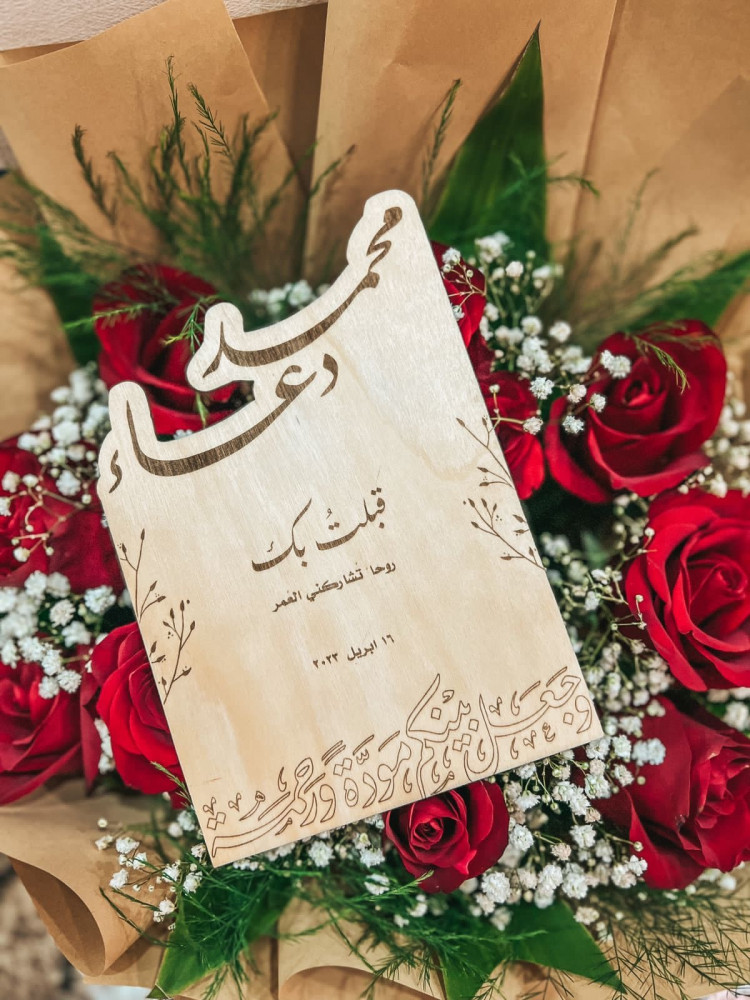 محمد
دعاء
قبلتُ بك
روحا تشاركني العمر
١٦ ابريل ٢٠٢٣
وَجَعَلَ بَيْنَكُم مَّوَدَّةً وَرَحْمَةً